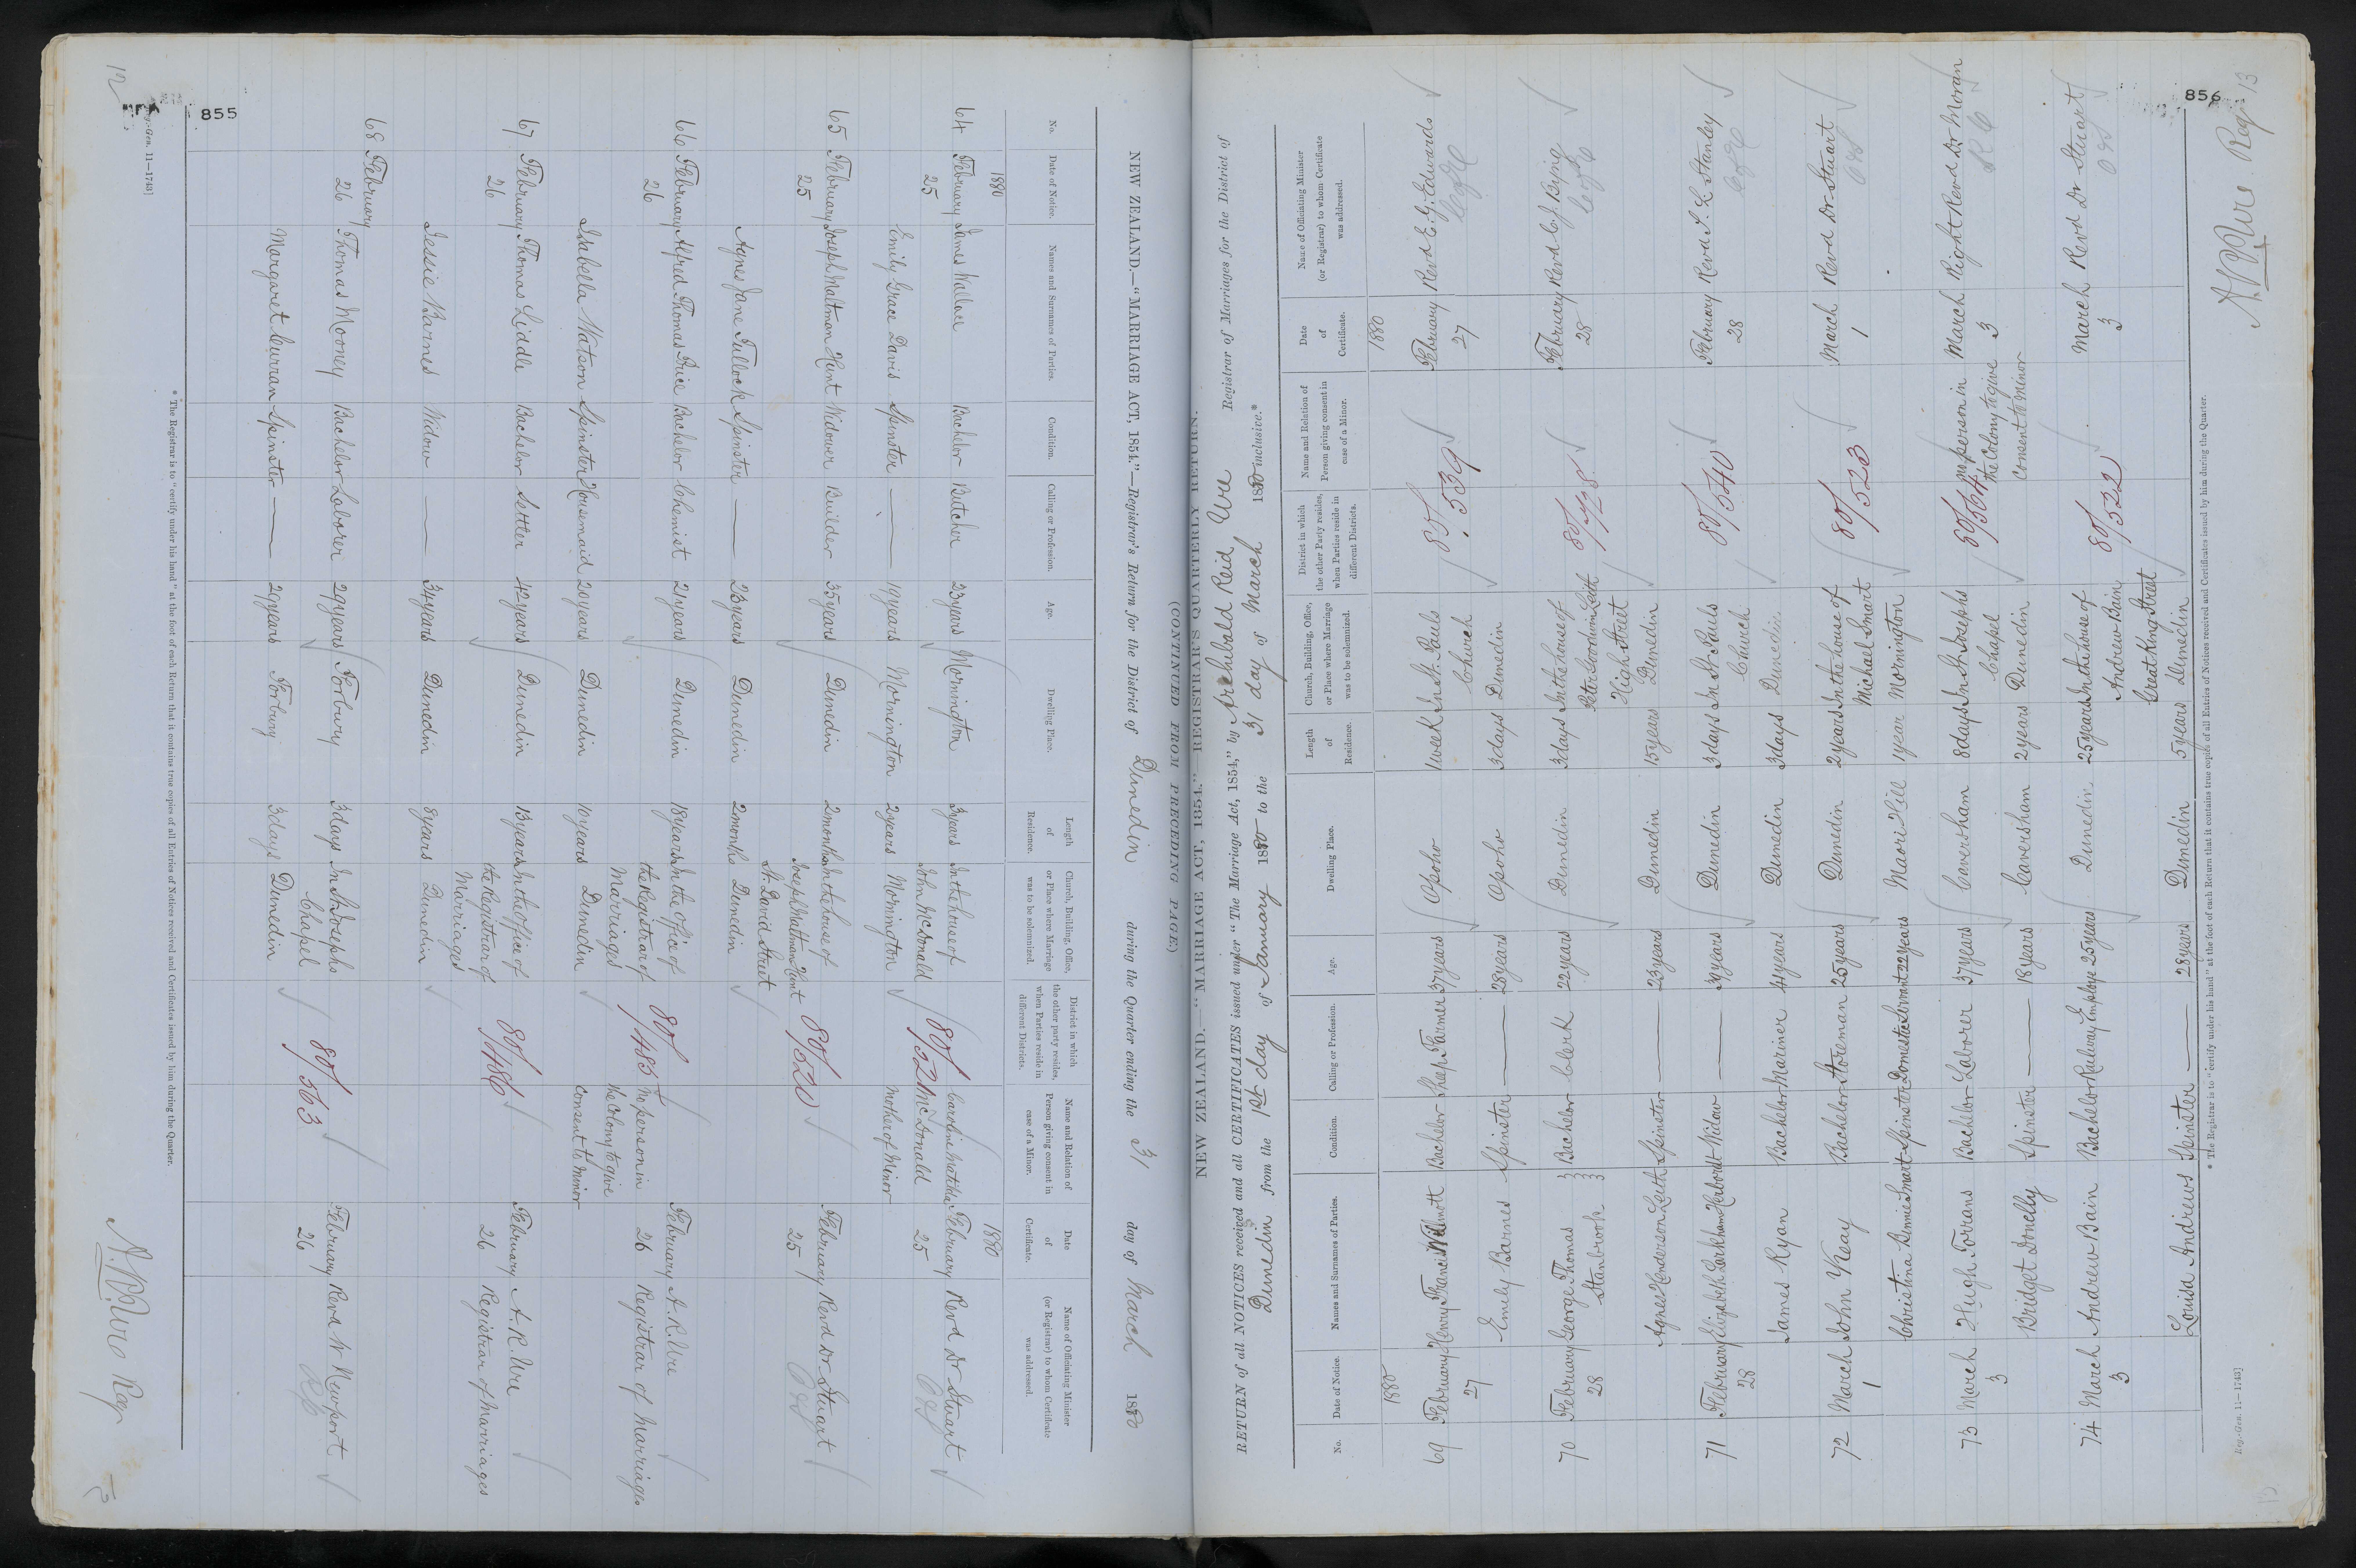 12
855
NEW ZEALAND.—"MARRIAGE ACT, 1854."—Registrar's Return for the District of Dunedin during the Quarter ending the 31 day of March 1880
(CONTINUED FROM PRECEDING PAGE)
No.
Date of Notice.
Names and Surnames of Parties.
Condition.
Calling or Profession.
Age.
Dwelling Place.
Length of Residence.
Church, Building, Office, or Place where Marriage was to be solemnized.
District in which the other party resides, when Parties reside in different Districts.
Name and Relation of Person giving consent in case of a Minor.
Date of Certificate.
Name of Officiating Minister (or Registrar) to whom Certificate was addressed.
1880
1880
64 February 25 James Wallace Bachelor Butcher 23 years Mornington 3 years In the house of John McDonald 80/521 Caroline Matilda McDonald mother of Minor February 25 Revd Dr Stuart
Emily Grace Davis Spinster 19 years Mornington 2 years Mornington
65 February 25 Joseph Maltman Hunt Widower Builder 35 years Dunedin 2 months In the house of Joseph Maltman Hunt St. David Street 80/520 February 25 Revd Dr Stuart
Agnes Jane Tulloch Spinster 23 years Dunedin 2 months Dunedin
66 February 26 Alfred Thomas Price Bachelor Chemist 21 years Dunedin 18 years In the office of the Registrar of Marriages 80/485 No person in the Colony to give consent to Minor February 26 A. R. Ure Registrar of Marriages
Isabella Watson Spinster Housemaid 20 years Dunedin 10 years Dunedin
67 February 26 Thomas Liddle Bachelor Settler 42 years Dunedin 13 years In the office of the Registrar of Marriages 80/486 February 26 A. R. Ure Registrar of Marriages
Jessie Barnes Widow 34 years Dunedin 8 years Dunedin
68 February 26 Thomas Mooney Bachelor Laborer 29 years Forbury 3 days In St Josephs Chapel 80/563 February 26 Revd W Newport R C
Margaret Curran Spinster 29 years Forbury 3 days Dunedin
* The Registrar is to "certify under his hand" at the foot of each Return that it contains true copies of all Entries of Notices received and Certificates issued by him during the Quarter.
Reg.-Gen. 11—1743]
A. R. Ure Reg
856
13
NEW ZEALAND.—"MARRIAGE ACT, 1854."—REGISTRAR'S QUARTERLY RETURN.
RETURN of all NOTICES received and all CERTIFICATES issued under "The Marriage Act, 1854," by Archibald Reid Ure Registrar of Marriages for the District of
Dunedin from the 1st day of January 1880 to the 31 day of March 1880 inclusive.*
No.
Date of Notice.
Names and Surnames of Parties.
Condition.
Calling or Profession.
Age.
Dwelling Place.
Length of Residence.
Church, Building, Office, or Place where Marriage was to be solemnized.
District in which the other Party resides, when Parties reside in different Districts.
Name and Relation of Person giving consent in case of a Minor.
Date of Certificate.
Name of Officiating Minister (or Registrar) to whom Certificate was addressed.
1880
1880
69 February 27 Henry Francis Wilmott Bachelor Sheep Farmer 37 years Opoho 1 week In St. Pauls Church 80/539 February 27 Revd E. G. Edwards C of E
Emily Barnes Spinster 28 years Opoho 3 days Dunedin
70 February 28 George Thomas Stanbrook Bachelor Clerk 22 years Dunedin 3 days In the house of Peter Goodwin Leith High Street 80/428 February 28 Revd C. J. Byng C of E
Agnes Henderson Leith Spinster 23 years Dunedin 15 years Dunedin
71 February 28 Elizabeth Larkham Herbordt Widow 39 years Dunedin 3 days In St. Pauls Church 80/540 February 28 Revd T. L. Stanley C of E
James Ryan Bachelor Mariner 41 years Dunedin 3 days Dunedin
72 March 1 John Keay Bachelor Storeman 25 years Dunedin 2 years In the house of Michael Smart 80/523 March 1 Revd Dr Stuart
Christina Binnie Smart Spinster Domestic Servant 22 years Maori Hill 1 year Mornington
73 March 3 Hugh Torrans Bachelor Laborer 37 years Caversham 8 days In St Josephs Chapel 80/564 no person in the Colony to give consent to Minor March 3 Right Revd Dr Moran R C
Bridget Donelly Spinster 18 years Caversham 2 years Dunedin
74 March 3 Andrew Bain Bachelor Railway Employe 25 years Dunedin 25 years In the house of Andrew Bain Great King Street 80/522 March 3 Revd Dr Stuart
Louisa Andrews Spinster 28 years Dunedin 5 years Dunedin
* The Registrar is to "certify under his hand" at the foot of each Return that it contains true copies of all Entries of Notices received and Certificates issued by him during the Quarter.
Reg.-Gen. 11—1743]
A R Ure Reg